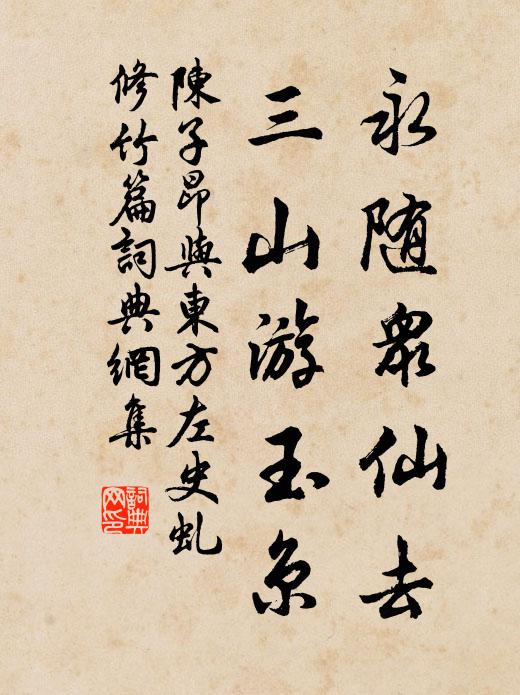 永随眾仙去
三山游玉京
陳子昂與東方左史虬
修竹篇詞典網集
詞典
网印